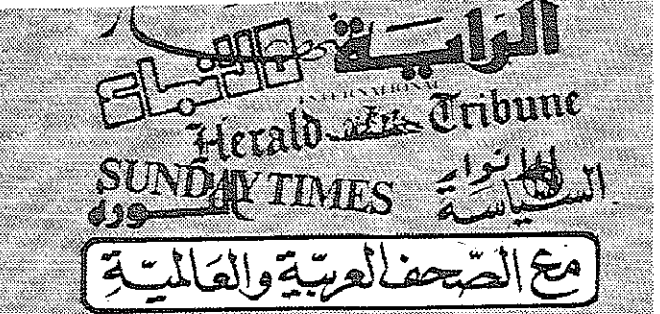 الراية الأنباء
INTERNATIONAL
Herald Tribune
الأنوار
SUNDAY TIMES السياسة
الثورة
مع الصّحف العربيّة والعَالميّة